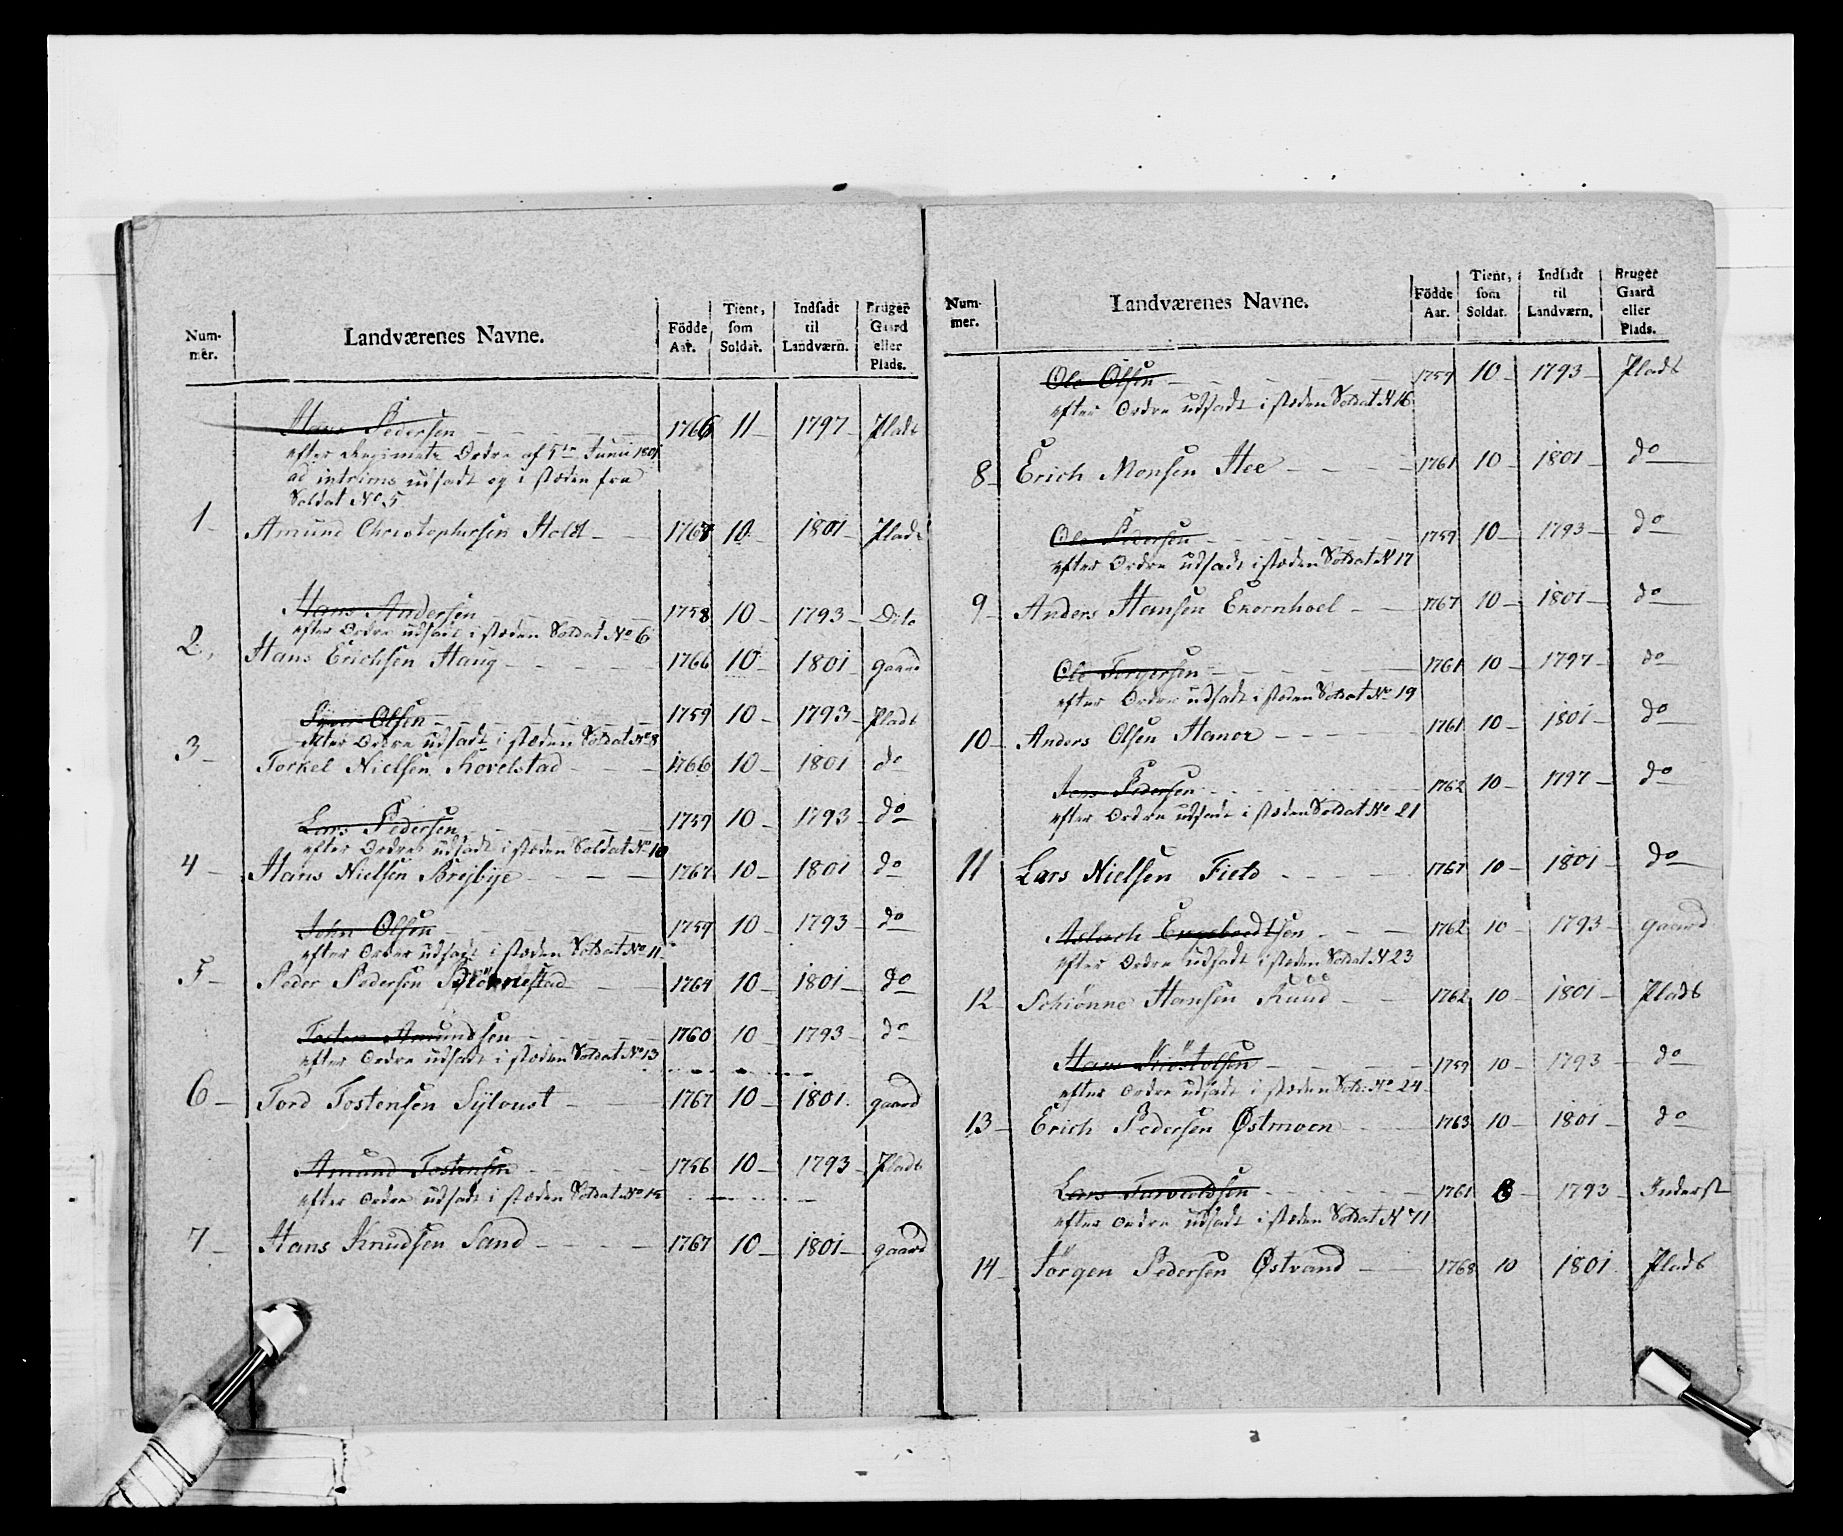 Num-
mer.
Landværenes Navne.
Födde
Aar.
Tient,
som
Soldat.
Indsadt
til
Landværn.
Bruger
Gaard
eller
Plads.
Hans Pedersen 1766 11 1797 Plads
efter Regimetz Ordre af 5te Junii 1801
ad intrims udsadt og i stæden fra
Soldat No 5
1 Amund Christophersen Holdt 1768 10 1801 Plads
Hans Andersen 1758 10 1793 Dito
efter Ordre udsadt i stæden Soldat No 6
2 Hans Erichsen Haug 1766 10 1801 gaard
Olsen 1759 10 1793 Plads
efter Ordre udsadt i stæden Soldat No 8
3 Torkel Nielsen 1766 10 1801 do
Lars Pedersen 1759 10 1793 do
efter Ordre udsadt i stæden Soldat No 10
4 Hans Nielsen Brejbye 1767 10 1801 do
John Olsen 1759 10 1793 do
efter Ordre udsadt i stæden Soldat No 11
5 Peder Pedersen 1764 10 1801 do
Tosten Amundsen 1760 10 1793 do
efter Ordre udsadt i stæden Soldat No 13
6 Tord Tostensen 1767 10 1801 gaard
Amund Tostensen 1756 10 1793 Plads
efter Ordre udsadt i stæden Soldat No
7 Hans Knudsen Sand 1767 10 1801 gaard
Num-
mer.
Landværenes Navne.
Födde
Aar.
Tient,
som
Soldat.
Indsadt
til
Landværn.
Bruger
Gaard
eller
Plads.
Ole Olsen 1759 10 1793 Plads
efter Ordre udsadt i stæden Soldat N 16
8 Erich Monsen Hee 1761 10 1801 do
Ole Pedersen 1759 10 1793 do
efter Ordre udsadt i stæden Soldat N 17
9 Anders Hansen Ekornhoel 1767 10 1801 do
Ole Torgersen 1761 10 1797 do
efter Ordre udsadt i stæden Soldat No 19
10 Anders Olsen Hanor 1761 10 1801 do
Jens Pedersen 1762 10 1797 do
efter Ordre udsadt i stæden Soldat No 21
11 Lars Nielsen Field 1767 10 1801 do
Aslach Engebredtsen 1762 10 1793 gaard
efter Ordre udsadt i stæden Soldat N 23
12 Schiönne Hansen Ruud 1762 10 1801 Plads
Hans 1759 10 1793 do
efter Ordre udsadt i stæden Sold: No 24
13 Erich Pedersen Østmoen 1763 10 1801 do
Lars 1761 8 1793 Inderst
efter ordre udsadt i stæden Soldat N 71
14 Jörgen Pedersen Østvand 1768 10 1801 Plads